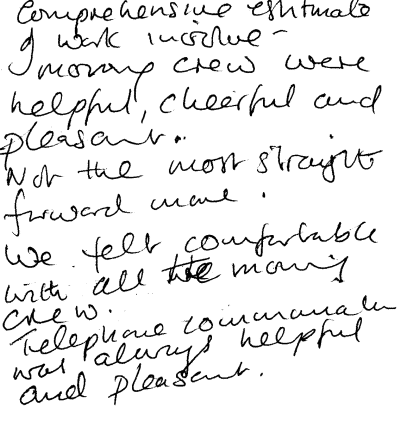 Comprehensive estimate
of work involve -
moving crew were
helpful, cheerful and
pleasant.
Not the most straight
forward move.
We felt comfortable
with all the moving
crew.
Telephone communication
was always helpful
and pleasant.